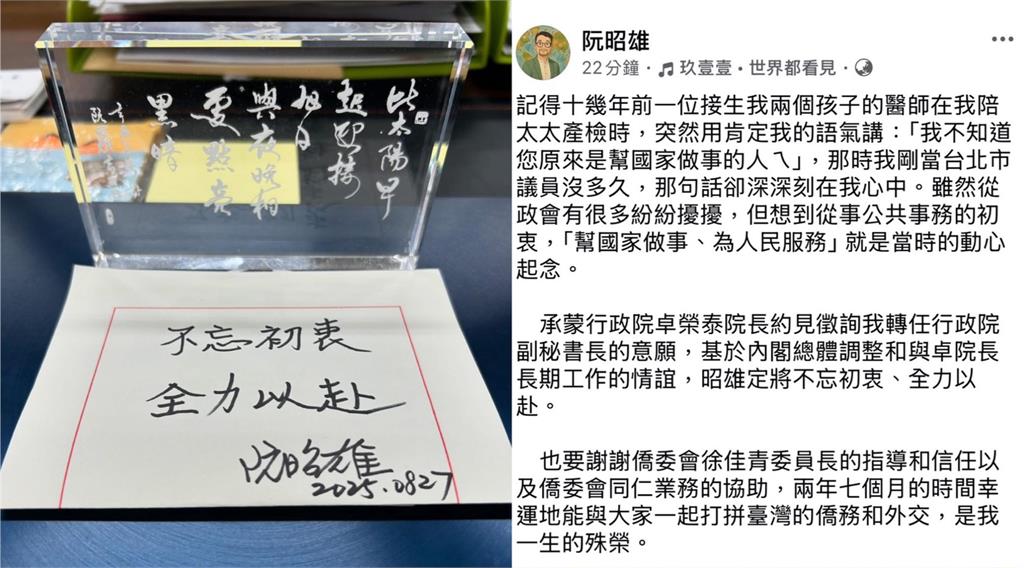 比太陽早
起迎接
旭日
與夜晚相
更點亮
黑暗
不忘初衷
全力以赴
阮昭雄
2025.0827
阮昭雄
22分鐘・玖壹壹・世界都看見・
記得十幾年前一位接生我兩個孩子的醫師在我陪
太太產檢時，突然用肯定我的語氣講：「我不知道
您原來是幫國家做事的人ㄟ」，那時我剛當台北市
議員沒多久，那句話卻深深刻在我心中。雖然從
政會有很多紛紛擾擾，但想到從事公共事務的初
衷，「幫國家做事、為人民服務」就是當時的動心
起念。
承蒙行政院卓榮泰院長約見徵詢我轉任行政院
副秘書長的意願，基於內閣總體調整和與卓院長
長期工作的情誼，昭雄定將不忘初衷、全力以
赴。
也要謝謝僑委會徐佳青委員長的指導和信任以
及僑委會同仁業務的協助，兩年七個月的時間幸
運地能與大家一起打拼臺灣的僑務和外交，是我
一生的殊榮。